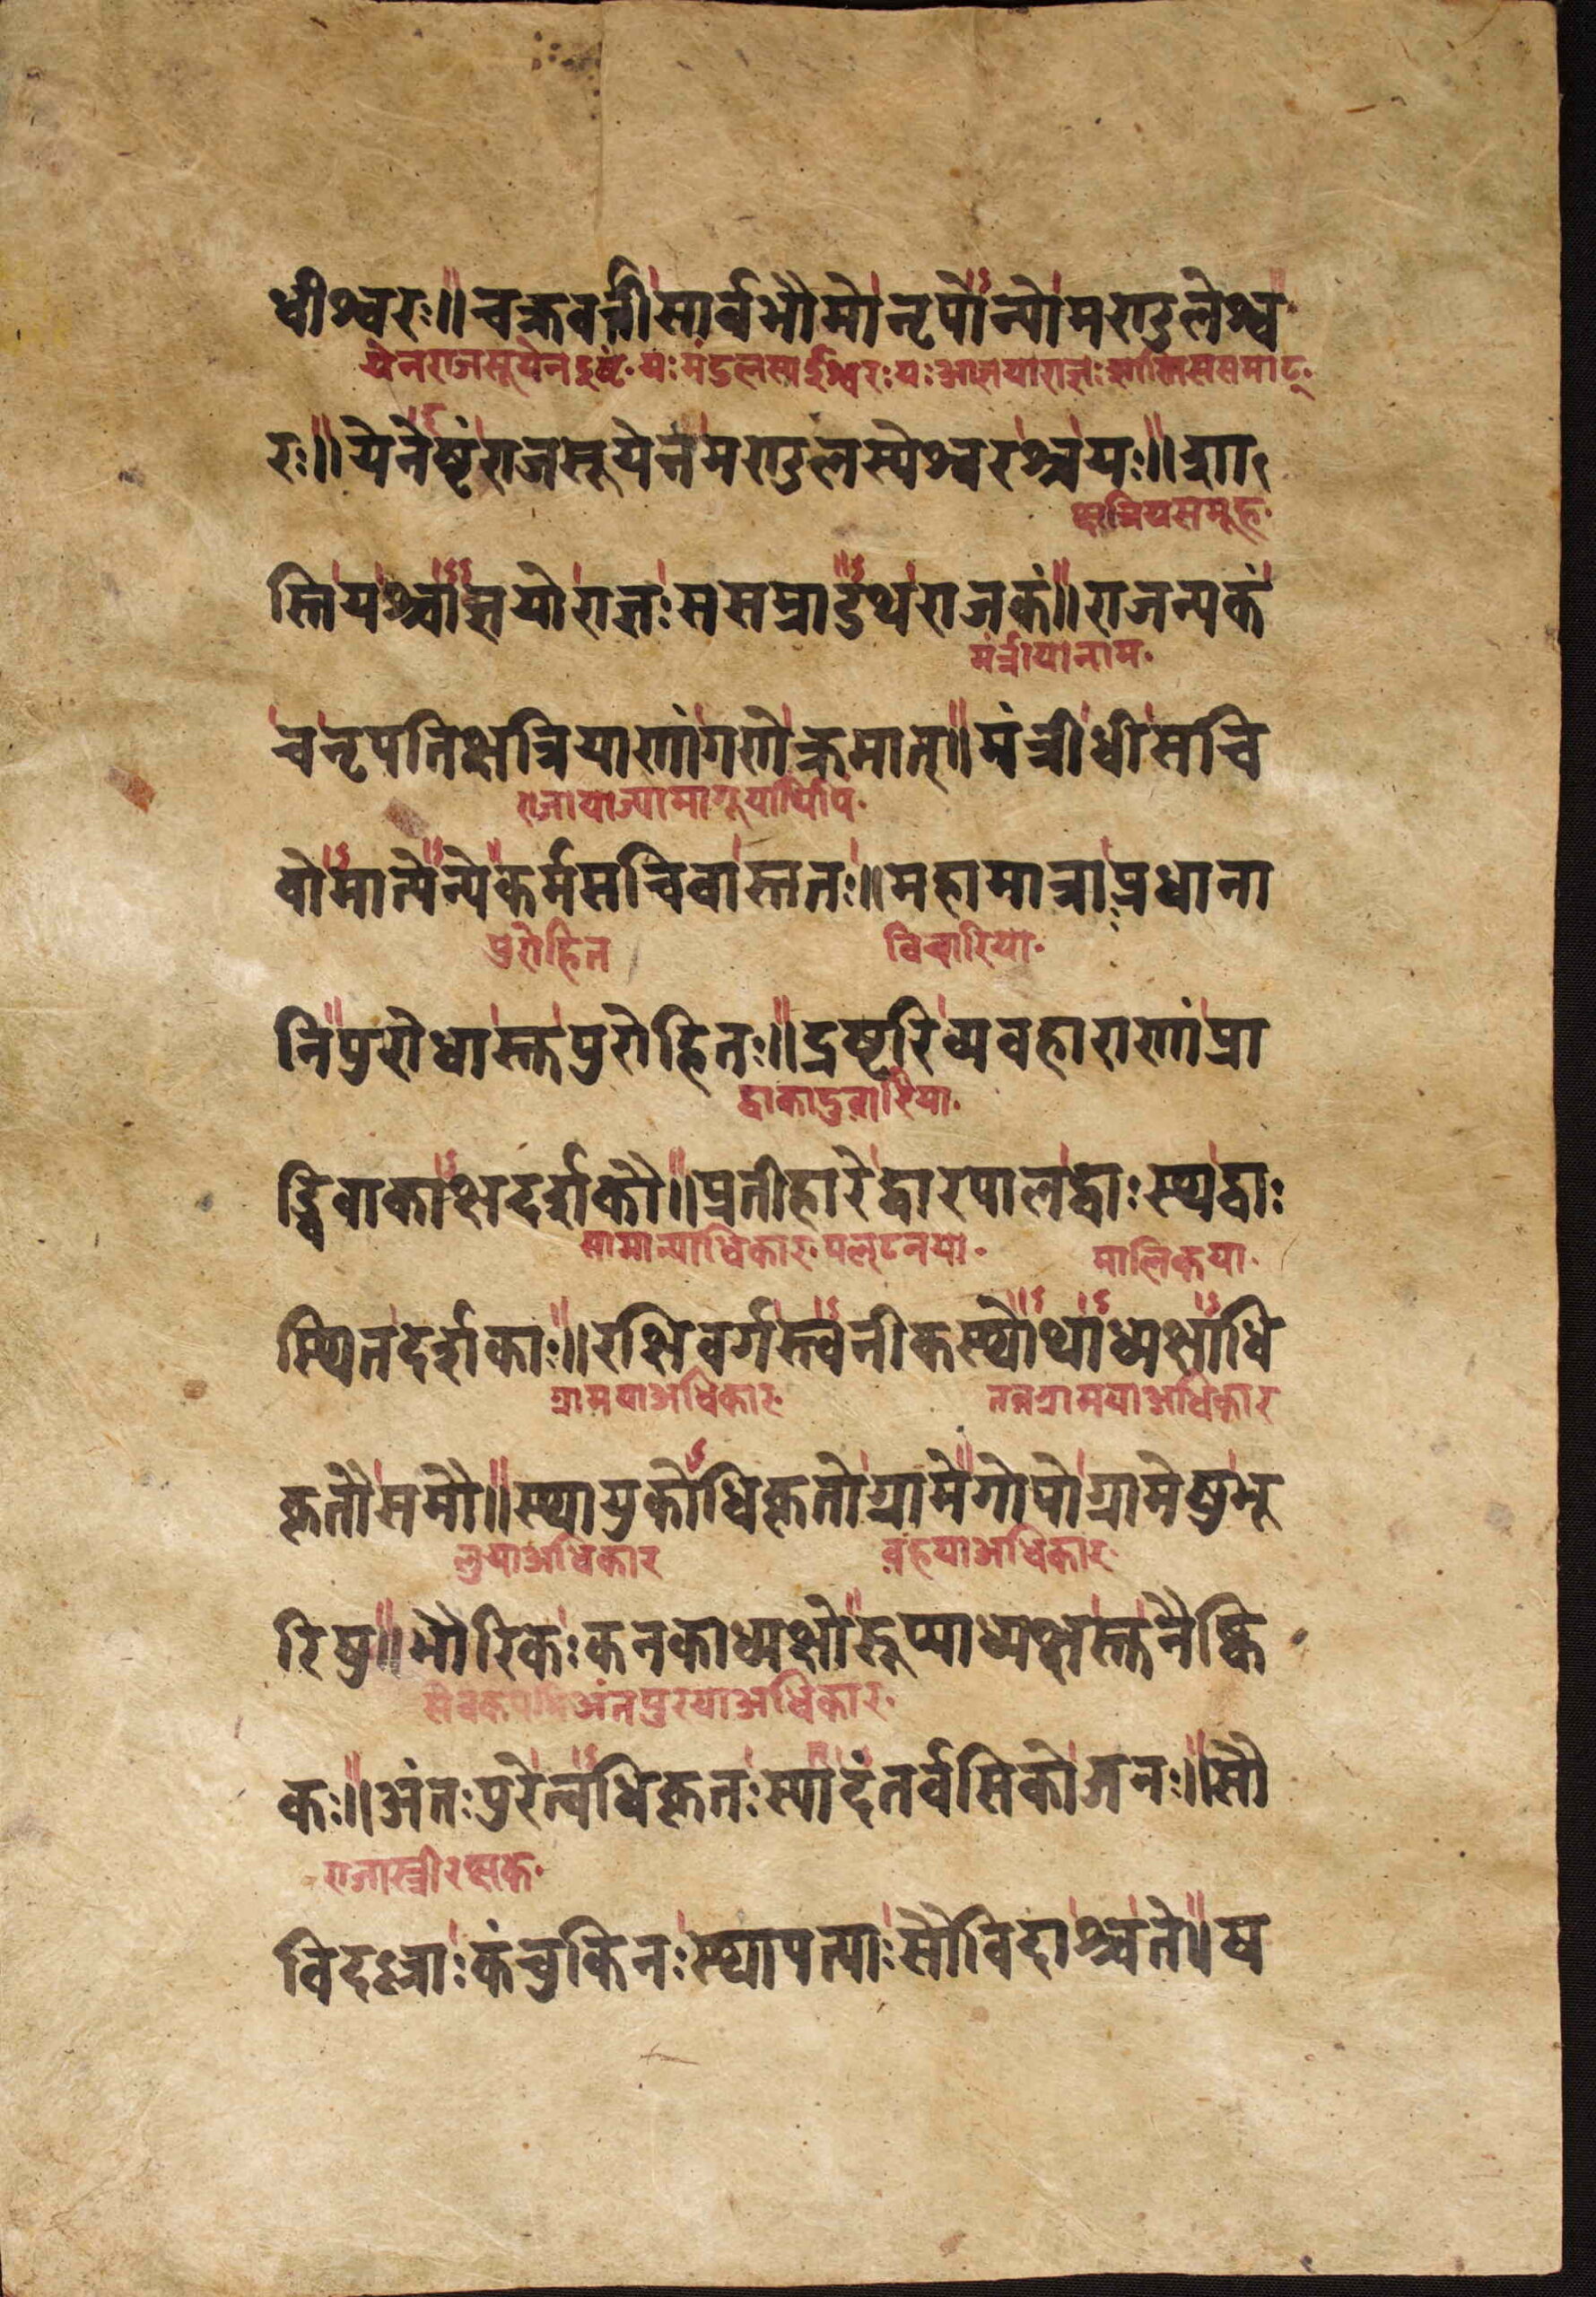 धीश्वरः॥ चक्रवर्त्ती सार्वभौमो नृपो न्यो मण्डलेश्व
येनराजसूयेनइष्टं यः मंडलस्यईश्वरः यः आज्ञयाराज्ञः शास्तिससम्राट्
रः॥ येनेष्टं राजसूयेन मण्डलस्येश्वरश्च यः॥ शा
क्षत्रियसमूह
स्ति यश्चाज्ञया राज्ञः स सम्राडथ राजकं॥ राजन्यकं
मंत्रीयानाम
च नृपतिक्षत्रियाणां गणे क्रमात्॥ मंत्री धीसचि
वोमात्येन्ये कर्मसचिवास्ततः॥ महामात्रा प्रधाना
पुरोहित विचारिया
नि पुरोधास्तु पुरोहितः॥ द्रष्टरि व्यवहाराणां प्रा
द्वाकादुवारिया
ड्विवाकाक्षदर्शकौ॥ प्रतीहारे द्वारपालद्वाःस्थद्वाः
सामान्याधिकार पलटनया मालिकया
स्थितदर्शकाः॥ रक्षिवर्गस्त्वनीकस्थोथाध्यक्षाधि
ग्रामयाअधिकार तत्रग्रामयाअधिकार
कृतौ समौ॥ स्थायुकोधिकृतो ग्रामे गोपो ग्रामेषु भू
लुयाअधिकार वहयाअधिकार
रिषु॥ भौरिकः कनकाध्यक्षो रूप्याध्यक्षस्तु नैष्कि
अंतपुरयाअधिकार
कः॥ अंतःपुरे त्वधिकृतः स्यादंतर्वंसिको जनः॥ सौ
राजास्त्रीरक्षक
विदल्लाः कंचुकिनः स्थापत्याः सौविदाश्च ते॥ ष